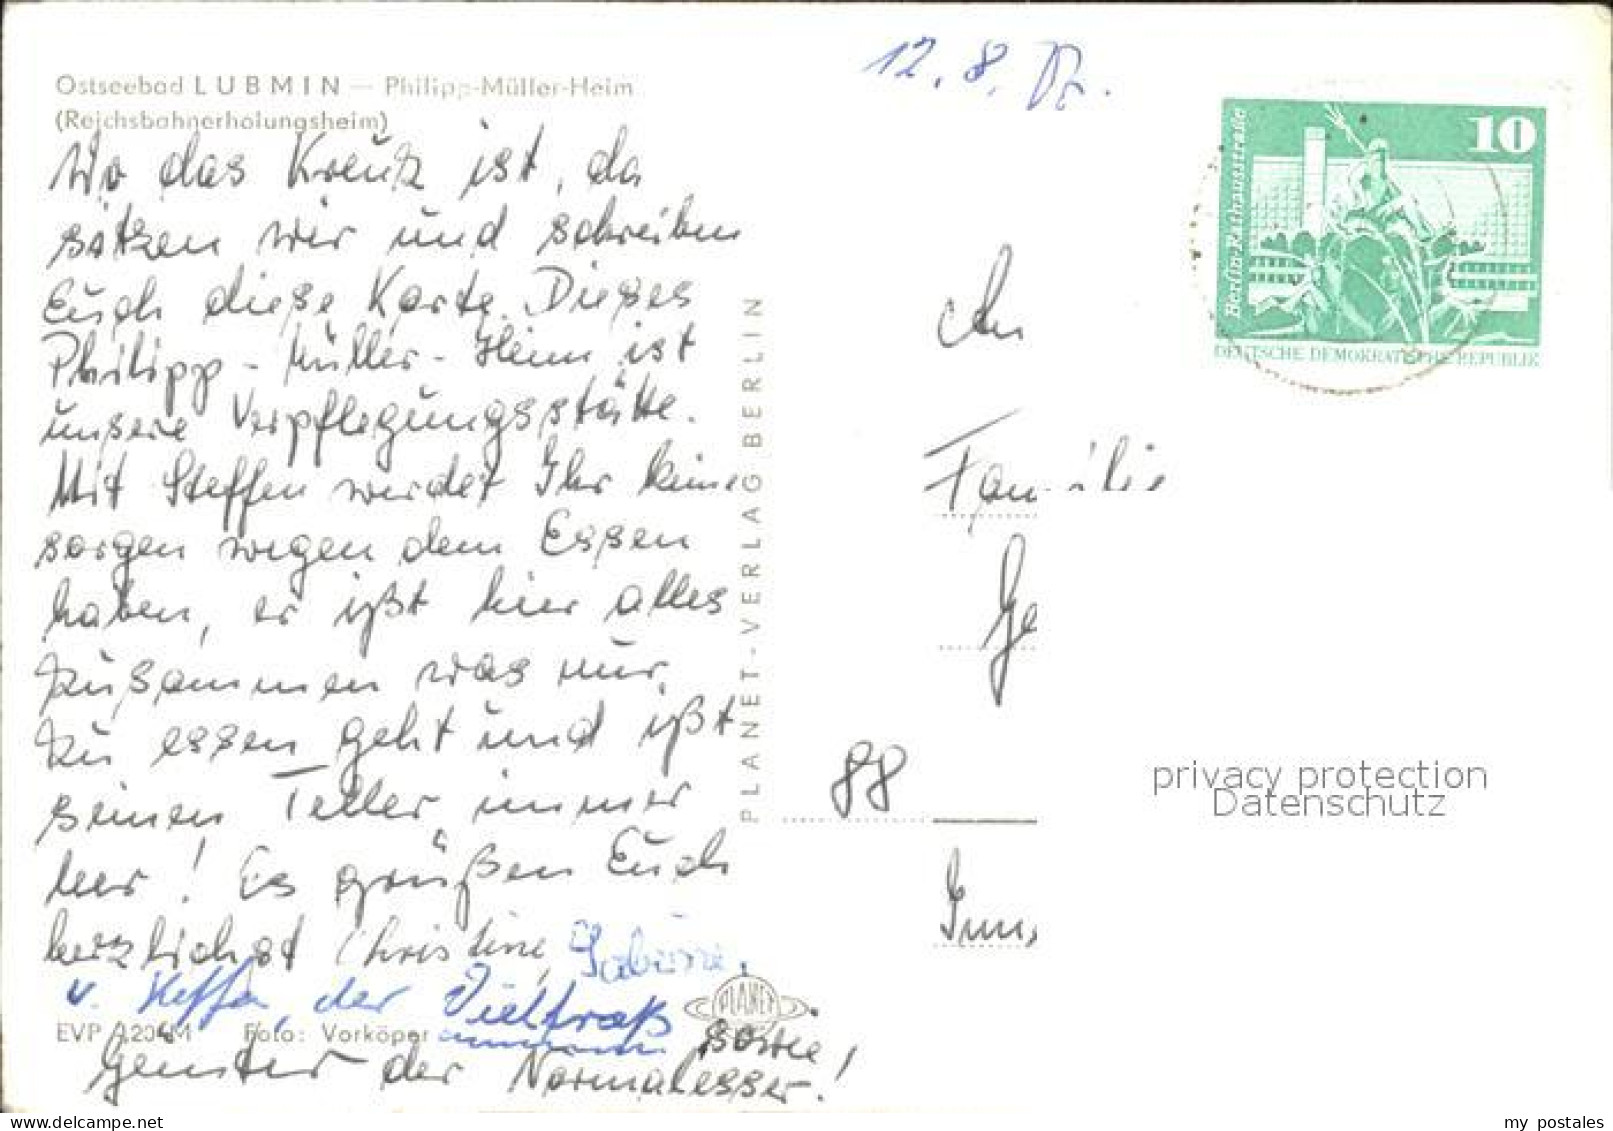 Ostseebad LUBMIN — Philipp-Müller-Heim
(Reichsbahnerholungsheim)
12. 8.
Wo das Kreuz ist, da
sitzen wir und schreiben
Euch diese Karte. Dieses
Philipp-Müller-Heim ist
unsere Verpflegungsstätte.
Mit Steffen werdet Ihr keine
sorgen wegen dem Essen
haben, er ißt hier alles
zusammen was nur
zu essen geht und ißt
seinen Teller immer
leer! Es grüßen Euch
herzlichst Christine,
v. Steffen, der Vielfraß
sowie
Günter der Normalesser!
EVP A204M Foto: Vorköper
PLANET-VERLAG BERLIN
PLANET
10
Berlin-Rathausstraße
DEUTSCHE DEMOKRATISCHE REPUBLIK
An
Familie
Ge
88
privacy protection
Datenschutz
delcampe.net
my postales